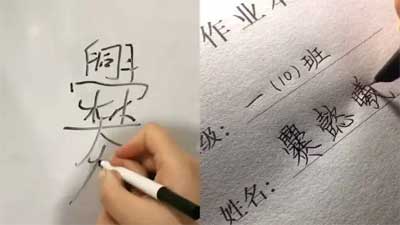 爨
作业本
级：一（10）班
姓名：爨懿曦